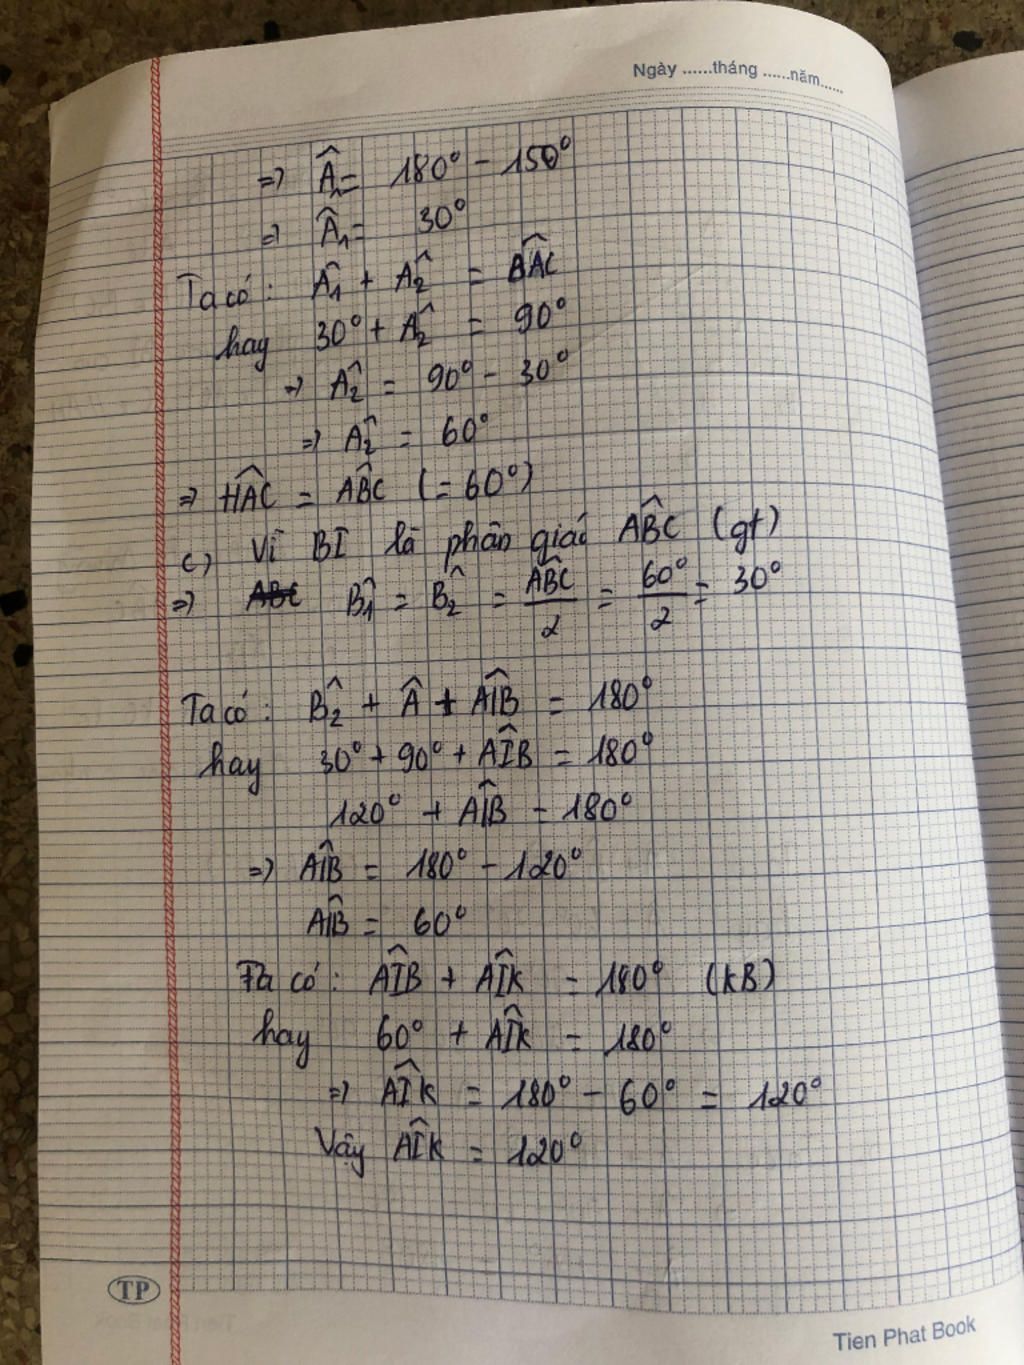 Ngày ......tháng ......năm......
=> Â₁= 180° - 150°
=> Â₁= 30°
Ta có: Â₁ + Â₂ = BÂC
hay 30° + Â₂ = 90°
=> Â₂ = 90° - 30°
=> Â₂ = 60°
=> HÂC = AB̂C (= 60°)
c) Vì BI là phân giác AB̂C (gt)
=> B̂₁ = B̂₂ = AB̂C/2 = 60°/2 = 30°
Ta có: B̂₂ + Â + AÎB = 180°
hay 30° + 90° + AÎB = 180°
120° + AÎB = 180°
=> AÎB = 180° - 120°
AÎB = 60°
Ta có: AÎB + AÎK = 180° (kB)
hay 60° + AÎK = 180°
=> AÎK = 180° - 60° = 120°
Vậy AÎK = 120°
TP
Tien Phat Book